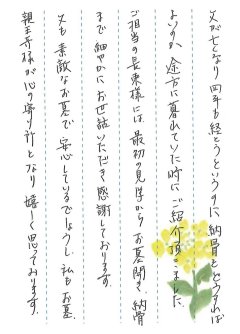 父が亡くなり 四年も経とうというのに 納骨をどうすれば
よいのか 途方に暮れていた時に ご紹介頂きました。
ご担当の長束様には、最初の見学からお墓開き、納骨
まで 細やかにお世話いただき 感謝しております。
父も素敵なお墓で 安心しているでしょうし 私もお墓、
親王寺様が心の寄り処となり 嬉しく思っております。